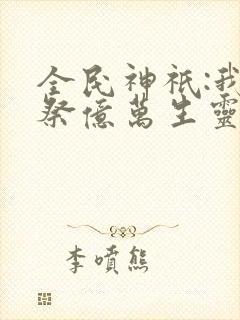 全民神祇:我
祭億萬生靈
李噴熊